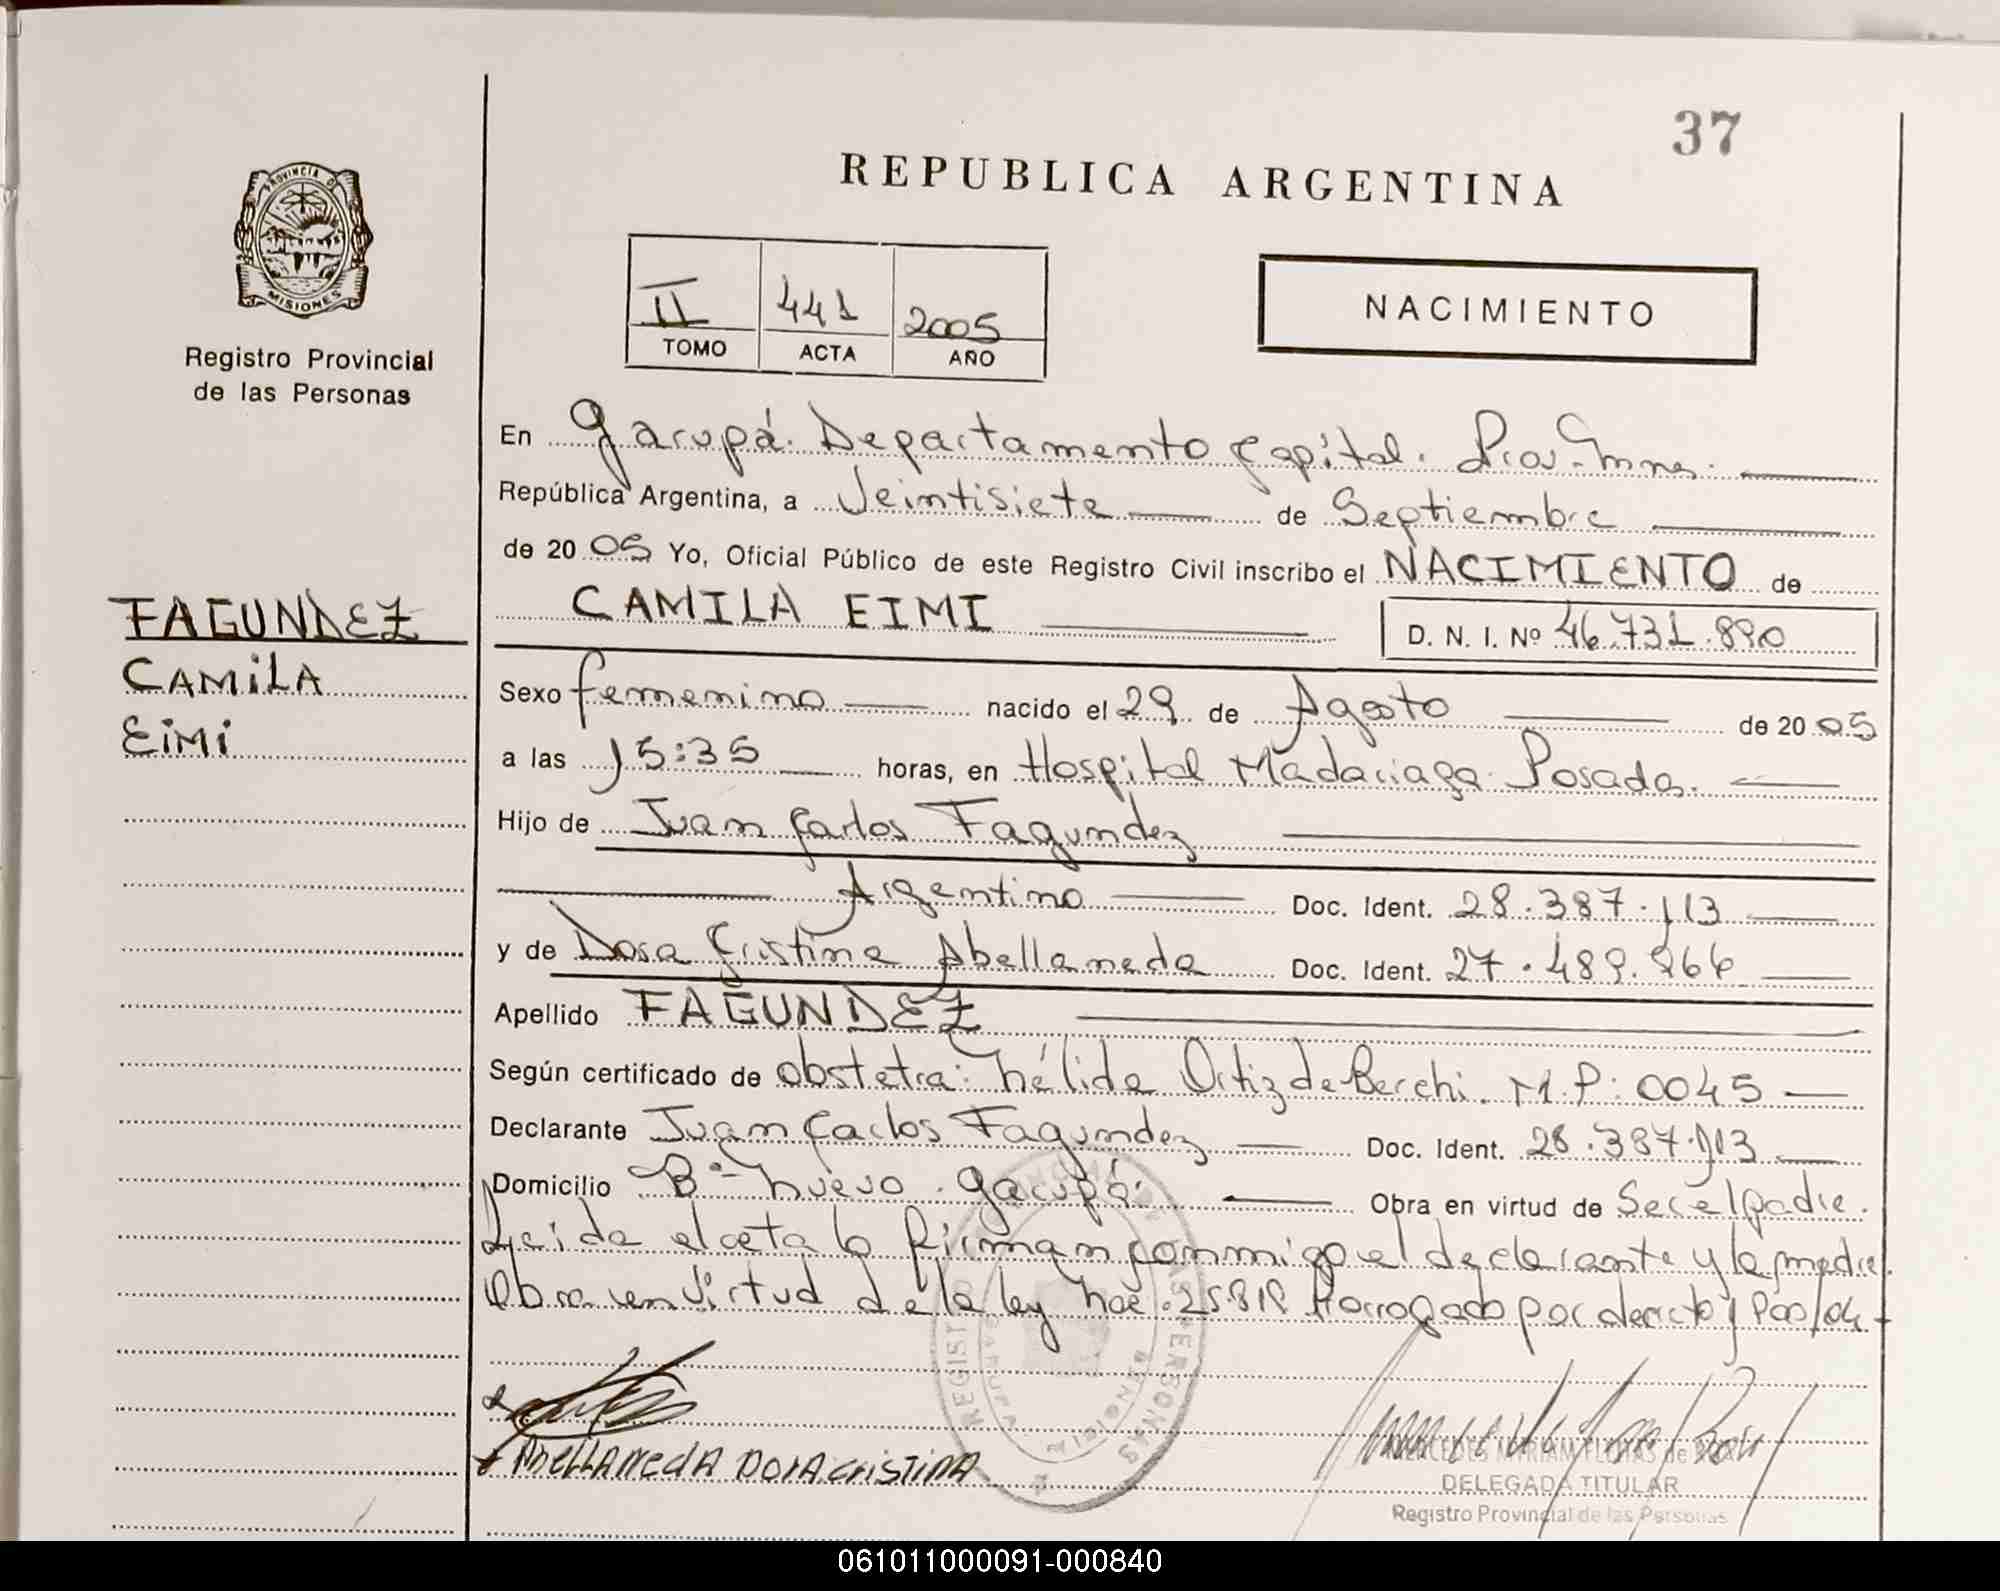 37
REPUBLICA ARGENTINA
PROVINCIA DE
MISIONES
Registro Provincial
de las Personas
II 441 2005
TOMO ACTA AÑO
NACIMIENTO
En Garupá. Departamento Capital. Prov. Mnes.
República Argentina, a Veintisiete de Septiembre
de 2005 Yo, Oficial Público de este Registro Civil inscribo el NACIMIENTO de
CAMILA EIMI
D. N. I. Nº 46.731.890
FAGUNDEZ
CAMILA
EIMI
Sexo femenino nacido el 29 de Agosto de 2005
a las 15:35 horas, en Hospital Madariaga Posadas.
Hijo de Juan Carlos Fagundez
Argentino Doc. Ident. 28.387.113
y de Dora Cristina Abellaneda Doc. Ident. 27.489.966
Apellido FAGUNDEZ
Según certificado de obstetra: Nélida Ortiz de Berchi. M.P: 0045
Declarante Juan Carlos Fagundez Doc. Ident. 28.387.113
Domicilio Bº nuevo. Garupá. Obra en virtud de Ser el padre.
Leida el acta la firman conmigo el declarante y la madre.
Obra en virtud de la ley nac. 25.819 Prorrogado por decreto
ABELLANEDA DORA CRISTINA
MERCEDES MYRIAM FLORES de
DELEGADA TITULAR
Registro Provincial de las Personas
061011000091-000840